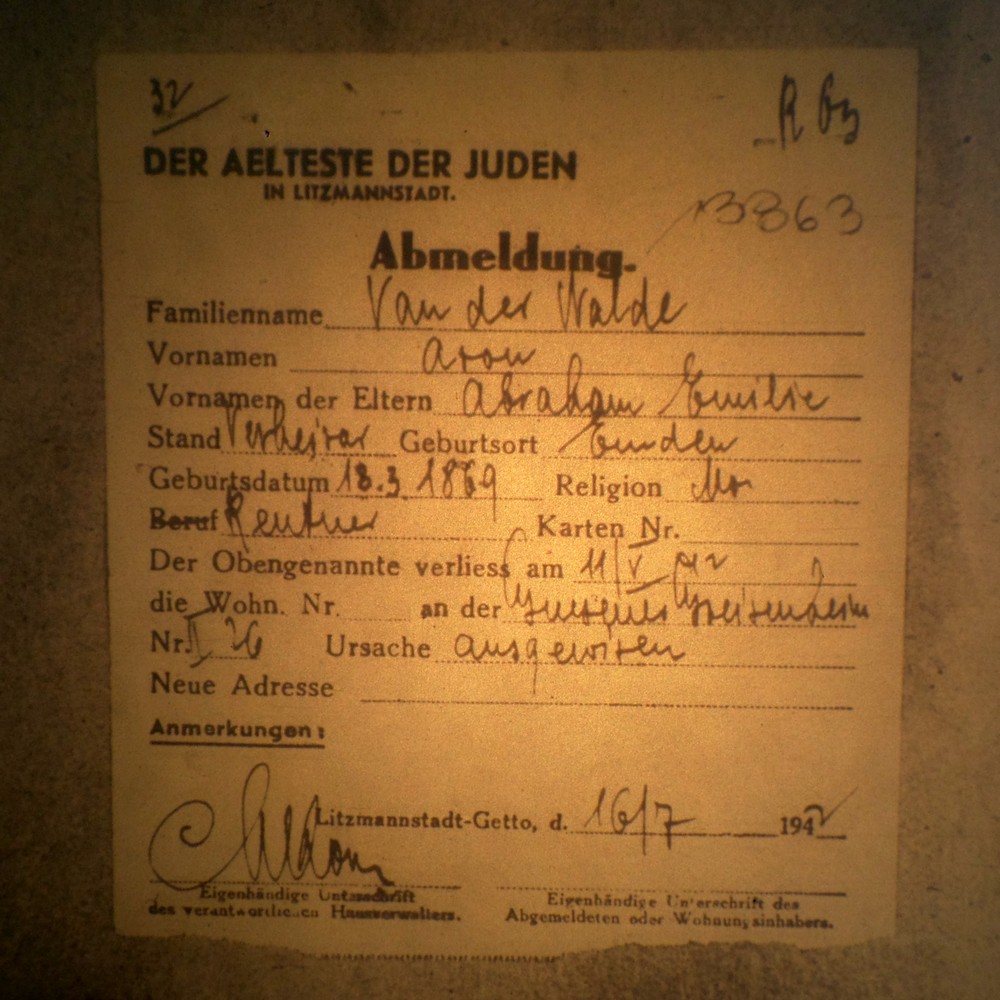 32 R 63
DER AELTESTE DER JUDEN
IN LITZMANNSTADT.
13863
Abmeldung.
Familienname Van der Walde
Vornamen Aron
Vornamen der Eltern Abraham Emilie
Stand Verheirat Geburtsort Emden
Geburtsdatum 18.3.1869 Religion Mos
Beruf Rentner Karten Nr.
Der Obengenannte verliess am 11/V 42
die Wohn. Nr. an der
Nr. 26 Ursache ausgewisen
Neue Adresse
Anmerkungen:
Litzmannstadt-Getto, d. 16/7 1942
Eigenhändige Unterschrift
des verantwortlichen Hausverwalters.
Eigenhändige Unterschrift des
Abgemeldeten oder Wohnungsinhabers.